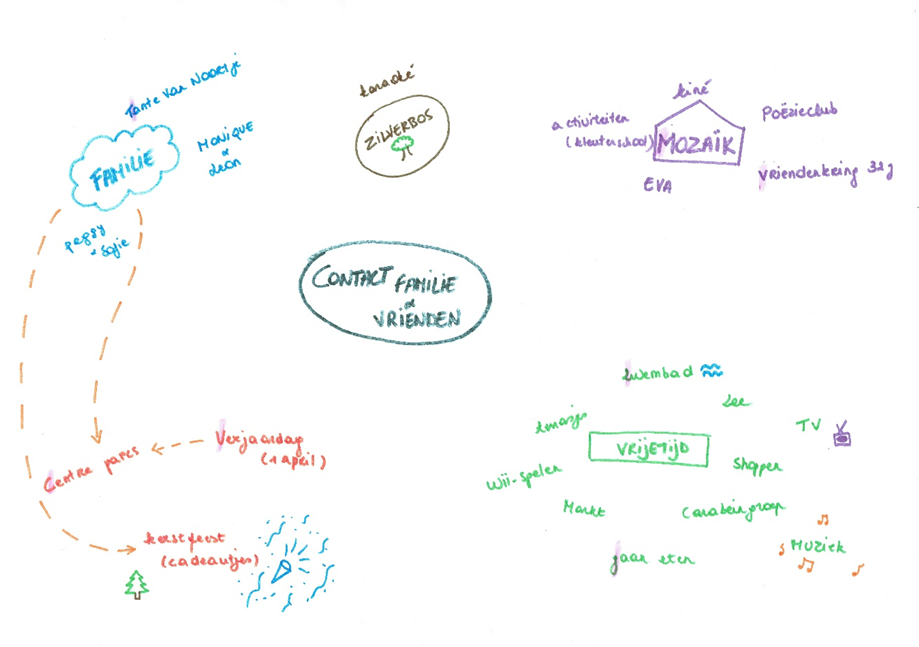 Tante van Noortje
MONIQUE
&
Leon
FAMILIE
peggy
& Sofie
karaoké
ZILVERBOS
kiné
activiteiten
(kleuterschool)
MOZAÏK
Poëzieclub
EVA
Vriendenkring 32g
CONTACT FAMILIE
&
VRIENDEN
Verjaardag
(1 april)
Centre parcs
kerstfeest
(cadeautjes)
Zwembad
Zee
TV
VRIJETIJD
Shoppen
Wii-spelen
Markt
gaan eten
MUZIEK